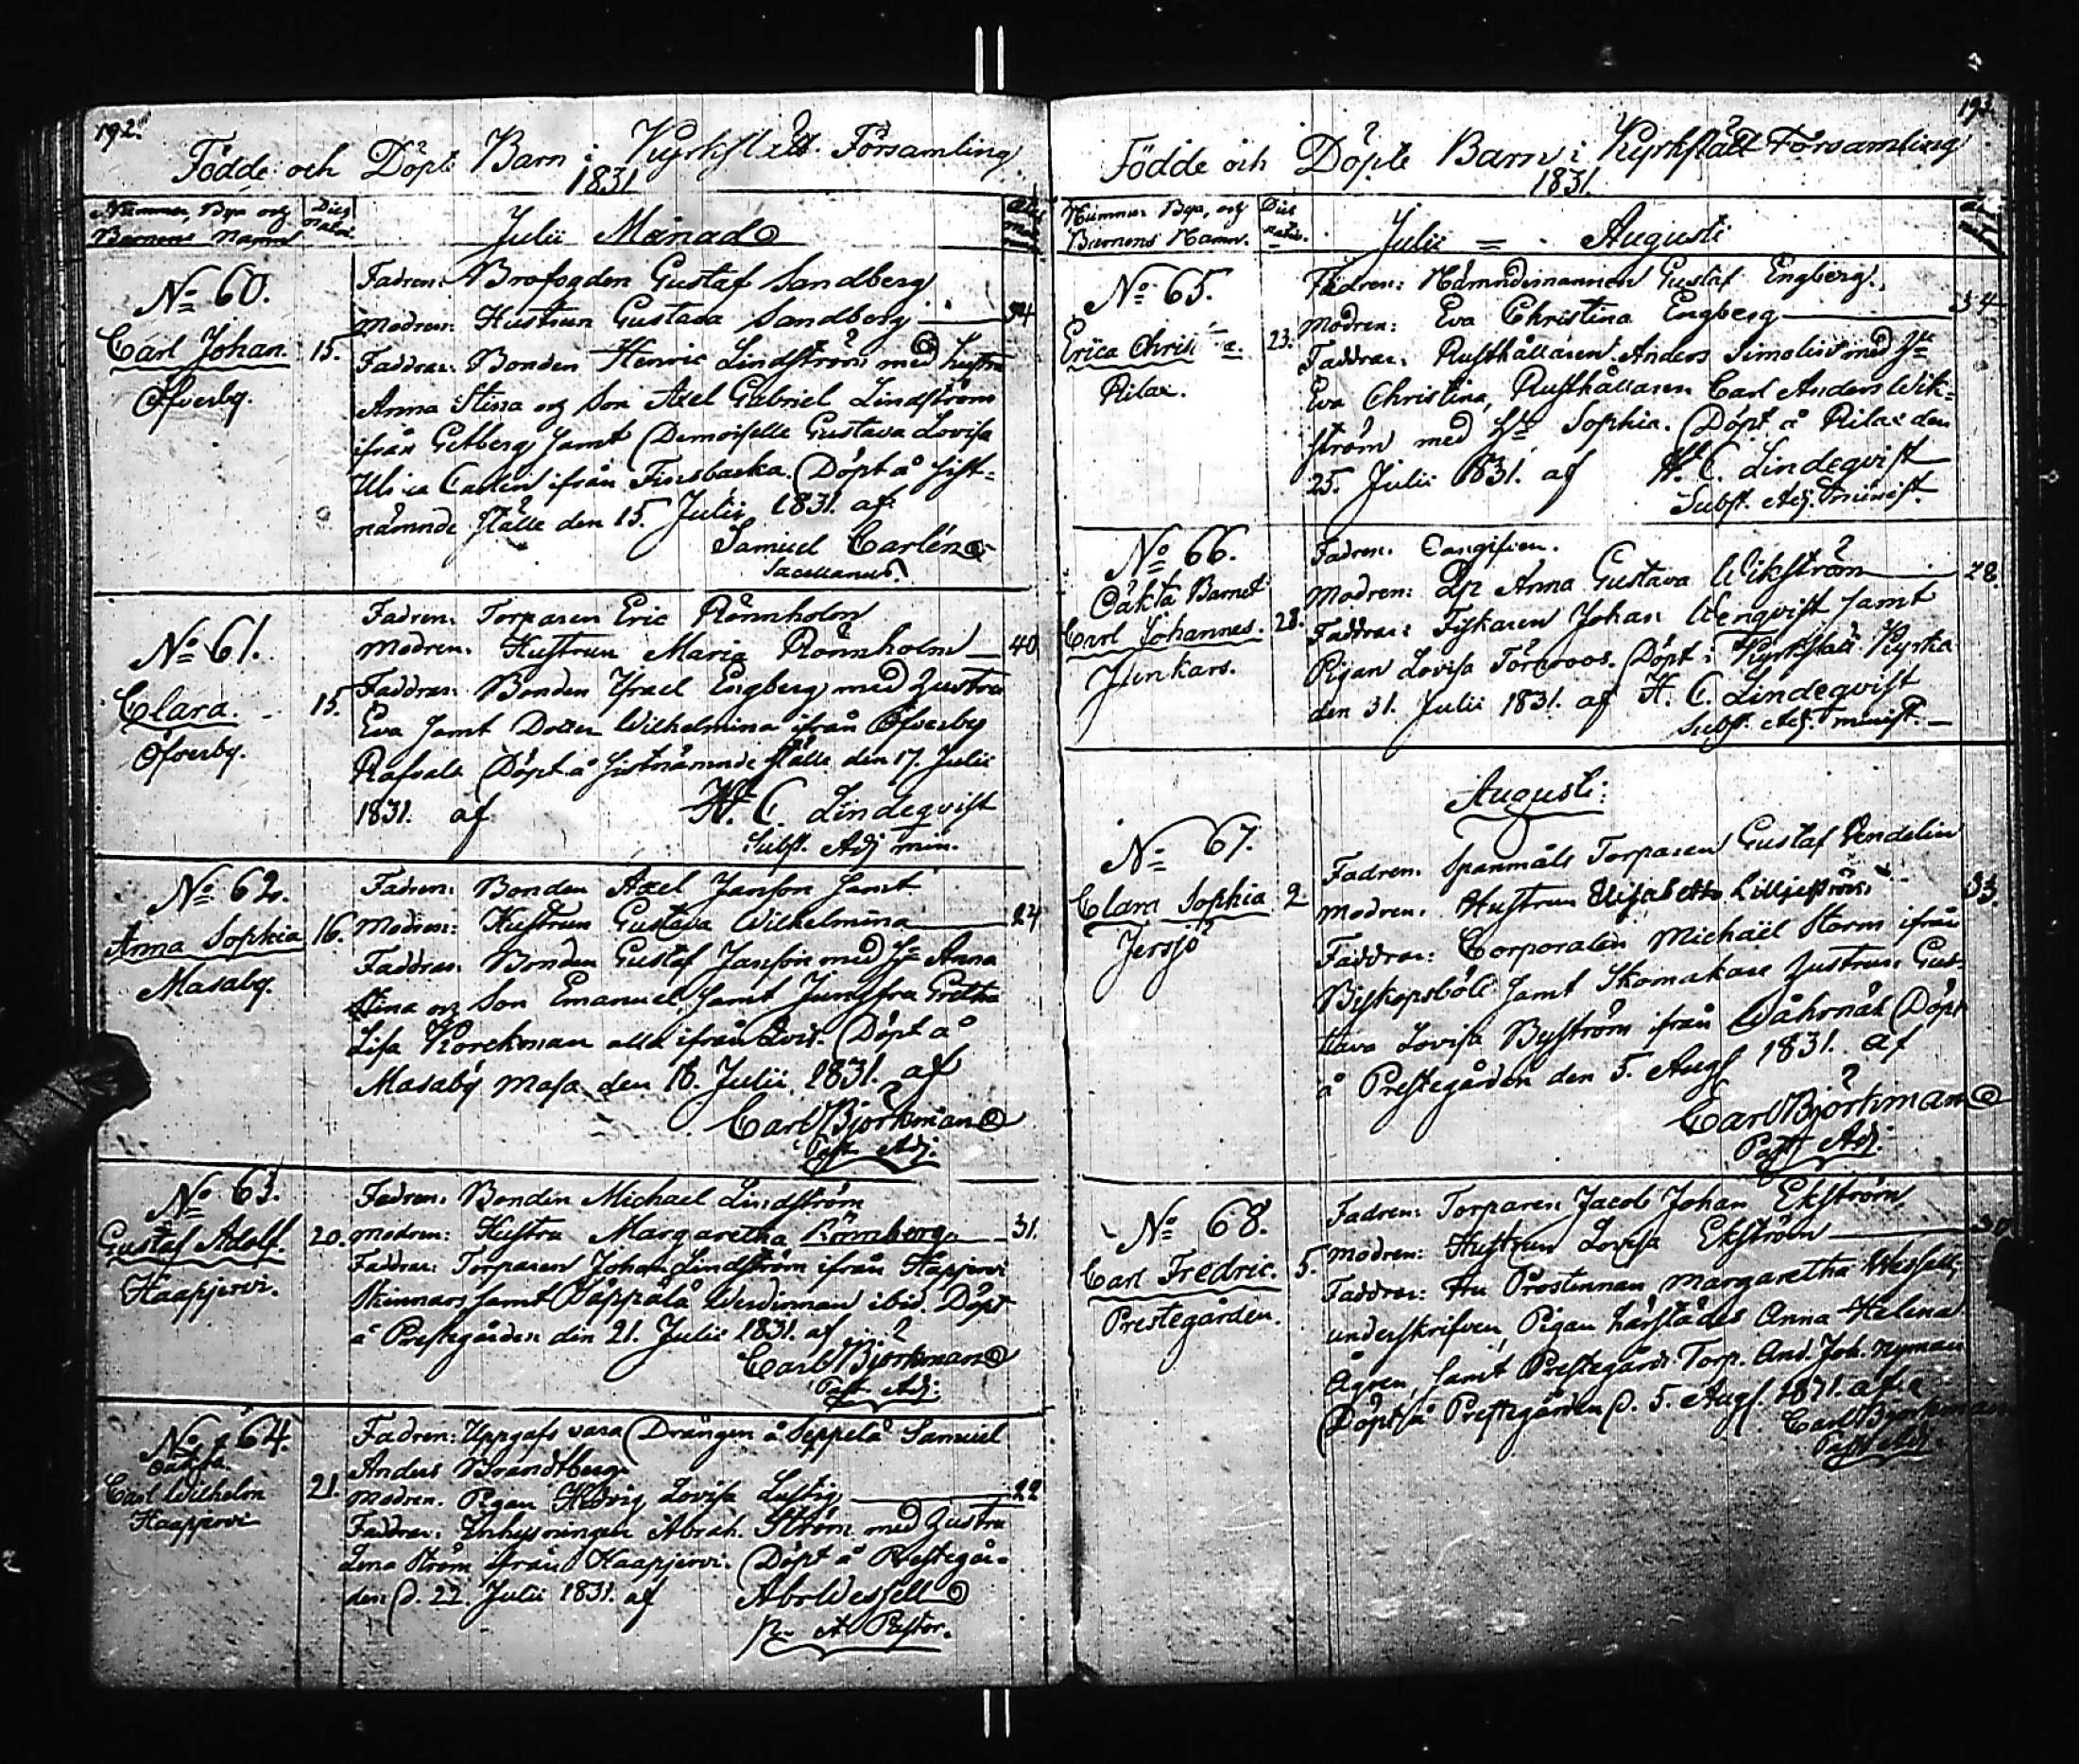 192.
Födde och Döpte Barn i Kyrkslätt Församling
1831
Nummer, Bya och
Barnens Namn
Dies
Natal.
Julii Månad
No 60.
Carl Johan.
15.
Öfverby.
Fadren: Brofogden Gustaf Sandberg
Modren: Hustrun Gustava Sandberg 34
Faddrar: Bonden Henric Lindström med hustru
Anna Stina och Son Axel Gabriel Lindström
ifrån Getberg samt Demoiselle Gustava Lovisa
Ulrica Carlén ifrån Finsbacka. Döpt å sist-
nämnde ställe den 15. Julii 1831. af
Samuel Carlén
Sacellanus.
No 61.
Clara.
15.
Öfverby.
Fadren: Torparen Eric Rönnholm
Modren. Hustrun Maria Rönnholm 40
Faddrar: Bonden Israel Engberg med hustru
Eva samt Dotter Wilhelmina ifrån Öfverby
Döpt å sistnämnde ställe den 17. Julii
1831. af H. C. Lindeqvist
Subst. Adj. min.
No 62.
Anna Sophia
16.
Masaby.
Fadren: Bonden Axel Janson samt
Modren: Hustrun Gustava Wilhelmina 24
Faddrar: Bonden Gustaf Janson med Hu Anna
Stina och Son Emanuel, samt Jungfru Gretha
Lisa Korckman alla ifrån Döpt å
Masaby Masa den 18. Julii 1831. af
Carl Björkman
Past. Adj.
No 63.
Gustaf Adolf.
20.
Haapjervi.
Fadren: Bonden Michael Lindström
Modren: Hustru Margaretha Rönnberg 31.
Faddrar: Torparen Johan Lindström ifrån Hapjervi
Skinnars, samt Wärdinnan ibid. Döpt
å Prestegården den 21. Julii 1831. af
Carl Björkman
Past. Adj.
No 64.
Oäkta
Carl Wilhelm
21.
Haapjervi
Fadren: Uppgafs vara Drängen å Seppelä Samuel
Anders Brandtberg
Modren. Pigan Hedvig Lovisa Lustig 22
Faddrar: Inhysningen Abrah. Ström med hustru
Lena Ström ifrån Haapjervi. Döpt å Prestegår-
den d. 22. Julii 1831. af Abr Wessell
Pastor.
Födde och Döpte Barn i Kyrkslätt Församling
1831.
Nummer Bya, och
Barnens Namn.
Dies
natal.
Julii = Augusti
No 65.
Erica Christina.
23.
Pilax.
Fadren: Nämndemannen Gustaf Engberg.
Modren: Eva Christina Engberg 34
Faddrar: Rusthållaren Anders Simolin med Hu
Eva Christina, Rusthållaren Carl Anders Wik=
ström med Hu Sophia. Döpt å Pilax den
25. Julii 1831. af H. C. Lindeqvist
Subst. Adj. minist.
No 66.
Oäkta Barnet
Carl Johannes.
28.
Junkars.
Fadren. Oangifven.
Modren: Anna Gustava Wikström 28.
Faddrar: Fiskaren Johan Wenqvist samt
Pigan Lovisa Törnroos. Döpt i Kyrkslätt Kyrka
den 31. Julii 1831. af H. C. Lindeqvist
Subst. Adj. minist.
Augusti:
No 67.
Clara Sophia
2
Jersjö
Fadren. Spanmåls Torparen Gustaf Vendelin
Modren. Hustrun Elisabeth Lilljeström 33.
Faddrar: Corporalen Michaël Storm ifrån
Biskopsböle samt Skomakare hustrun Gus-
tava Lovisa Byström ifrån Döpt
å Prestegården den 5. Aug. 1831. af
Carl Björkman
Past Adj.
No 68.
Carl Fredric.
5.
Prestegården.
Fadren: Torparen Jacob Johan Ekström
Modren: Hustrun Lovisa Ekström
Faddrar: Fru Prostinnan Margaretha Wessell,
underskrifven, Pigan härstädes Anna Helena
Ågren, samt Prestegårds Torp. And. Joh. Nyman
Döpt å Prestegården d. 5. Aug. 1831. af
Carl Björkman
Past Adj.